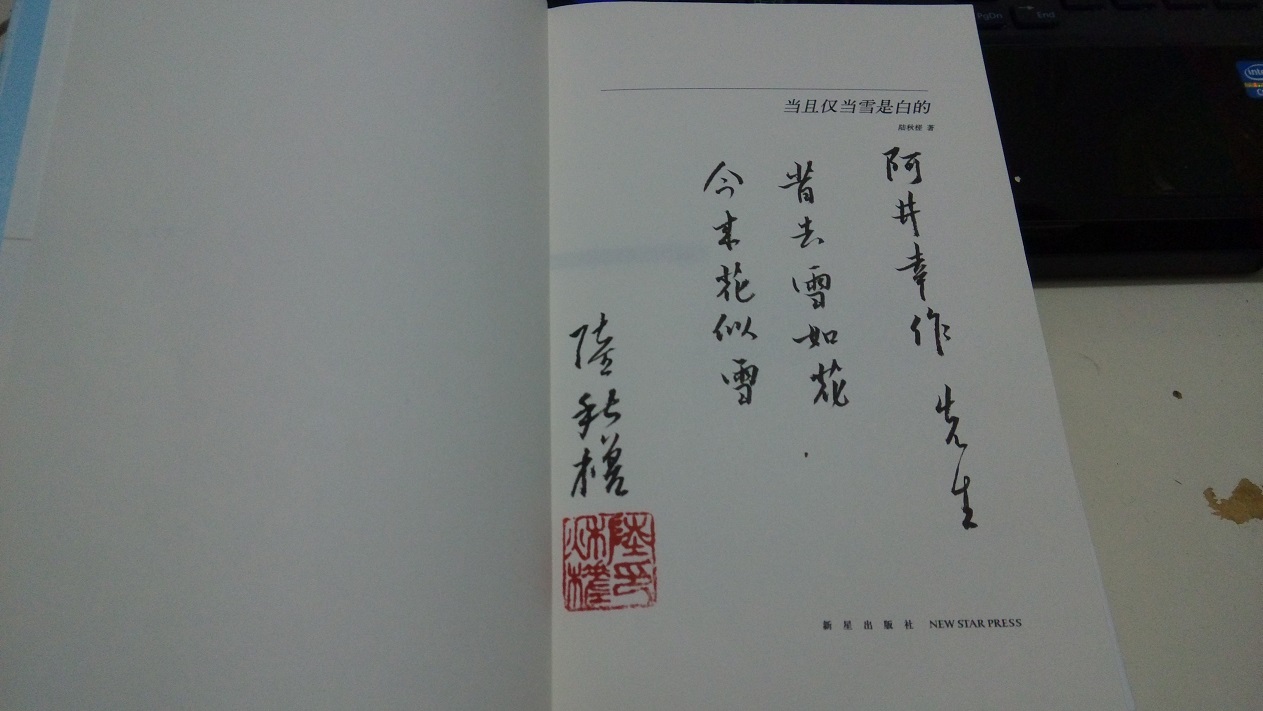 当且仅当雪是白的
陆秋槎 著
阿井幸作 先生
昔去雪如花
今来花似雪
陸秋槎
陸印
秌槎
新星出版社 NEW STAR PRESS
PgDn
End
intel